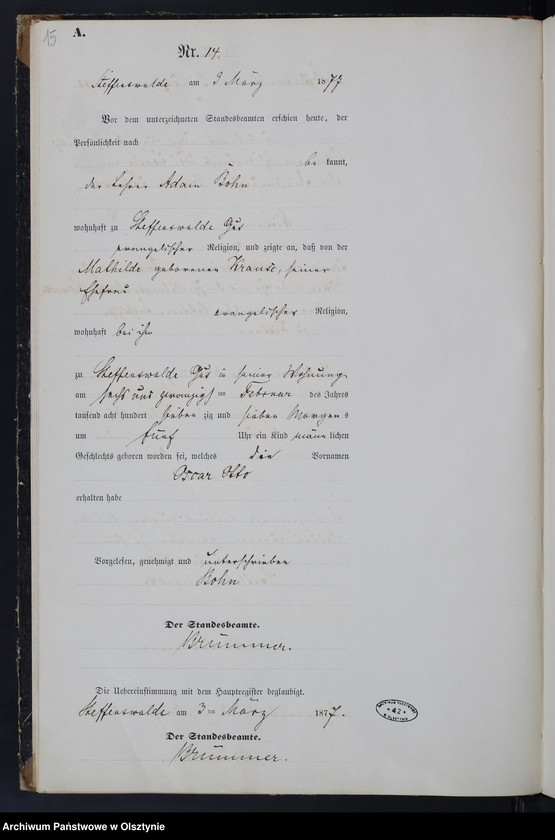 15
A.
Nr. 14.
Steffenswalde am 3 März 1877
Vor dem unterzeichneten Standesbeamten erschien heute, der
Persönlichkeit nach
be kannt,
der Lehrer Adam Bohn
wohnhaft zu Steffenswalde Gut
evangelischer Religion, und zeigte an, daß von der
Mathilde geborenen Krause, seiner
Ehefrau
evangelischer Religion,
wohnhaft bei ihm
zu Steffenswalde Gut in seiner Wohnung
am sechs und zwanzigsten Februar des Jahres
tausend acht hundert sieben zig und sieben Morgen s
um fünf Uhr ein Kind männ lichen
Geschlechts geboren worden sei, welches die Vornamen
Oscar Otto
erhalten habe
Vorgelesen, genehmigt und unterschrieben
Bohn
Der Standesbeamte.
Brümmer.
Die Uebereinstimmung mit dem Hauptregister beglaubigt.
Steffenswalde am 3ten März 1877.
Der Standesbeamte.
Brümmer.
ARCHIWUM PAŃSTWOWE
* 42 *
W OLSZTYNIE
Archiwum Państwowe w Olsztynie